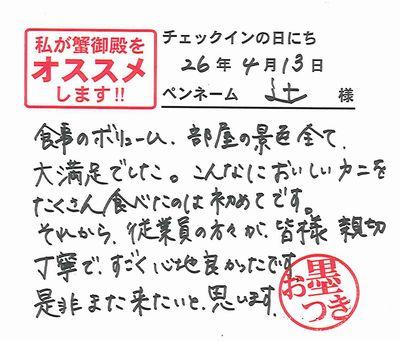 私が蟹御殿を
オススメ
します!!
チェックインの日にち
26年4月13日
ペンネーム 辻 様
食事のボリューム、部屋の景色全て、
大満足でした。こんなにおいしいカニを
たくさん食べたのは初めてです。
それから、従業員の方々が、皆様 親切
丁寧で、すごく心地良かったです
是非また来たいと、思います。
お墨つき